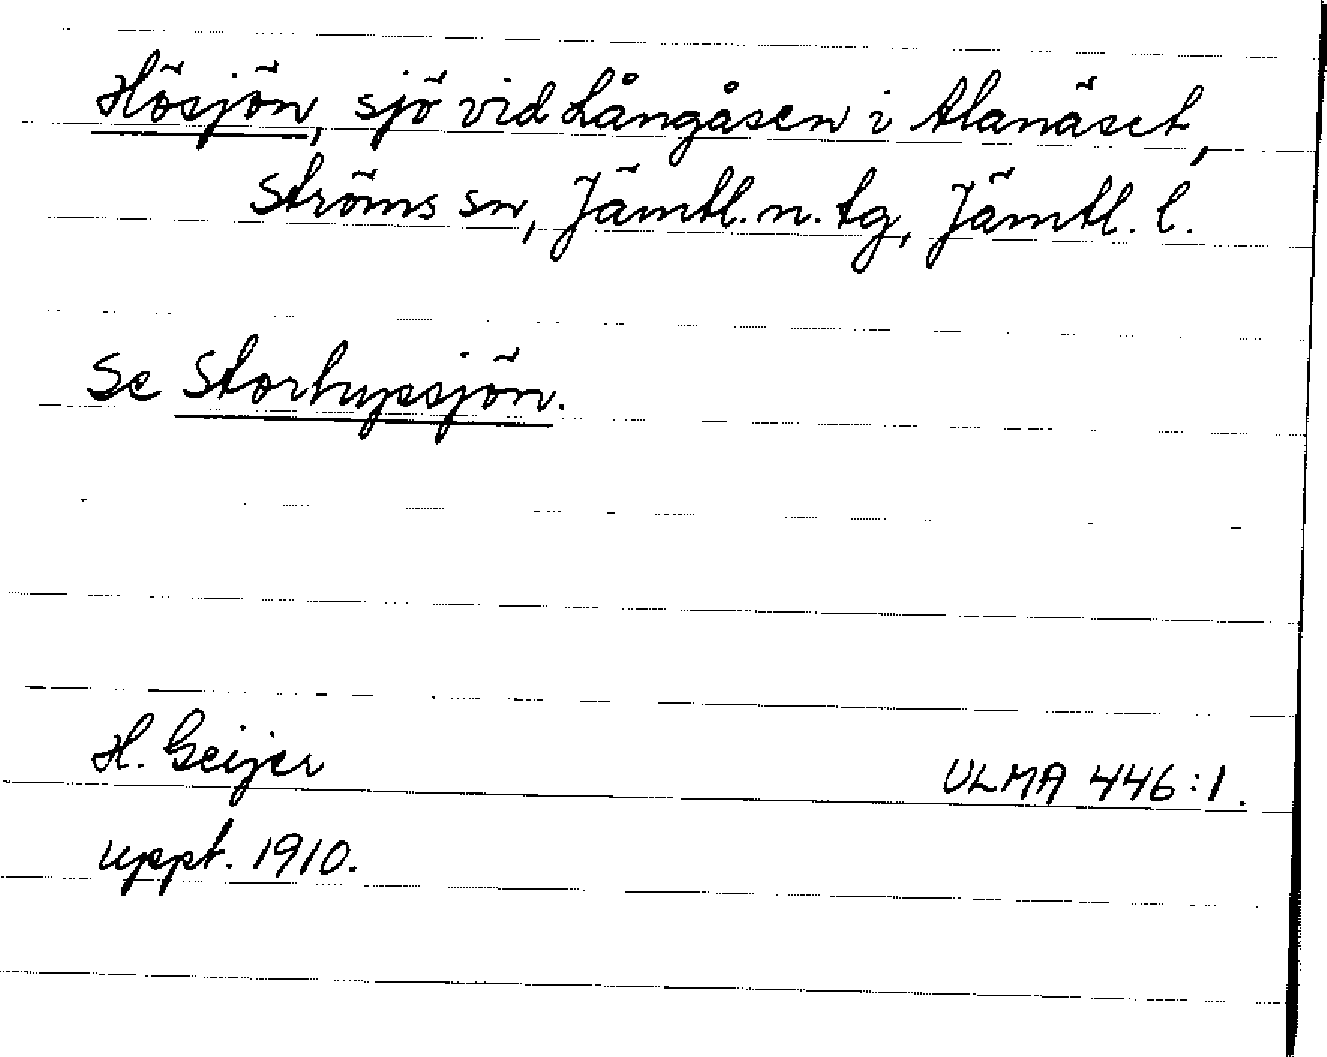 Hösjön, sjö vid Långåsen i Alanäset,
Ströms sn, Jämtl. n. tg, Jämtl. l.
Se Storhypssjön.
H. Geijer
ULMA 446:1.
uppt. 1910.